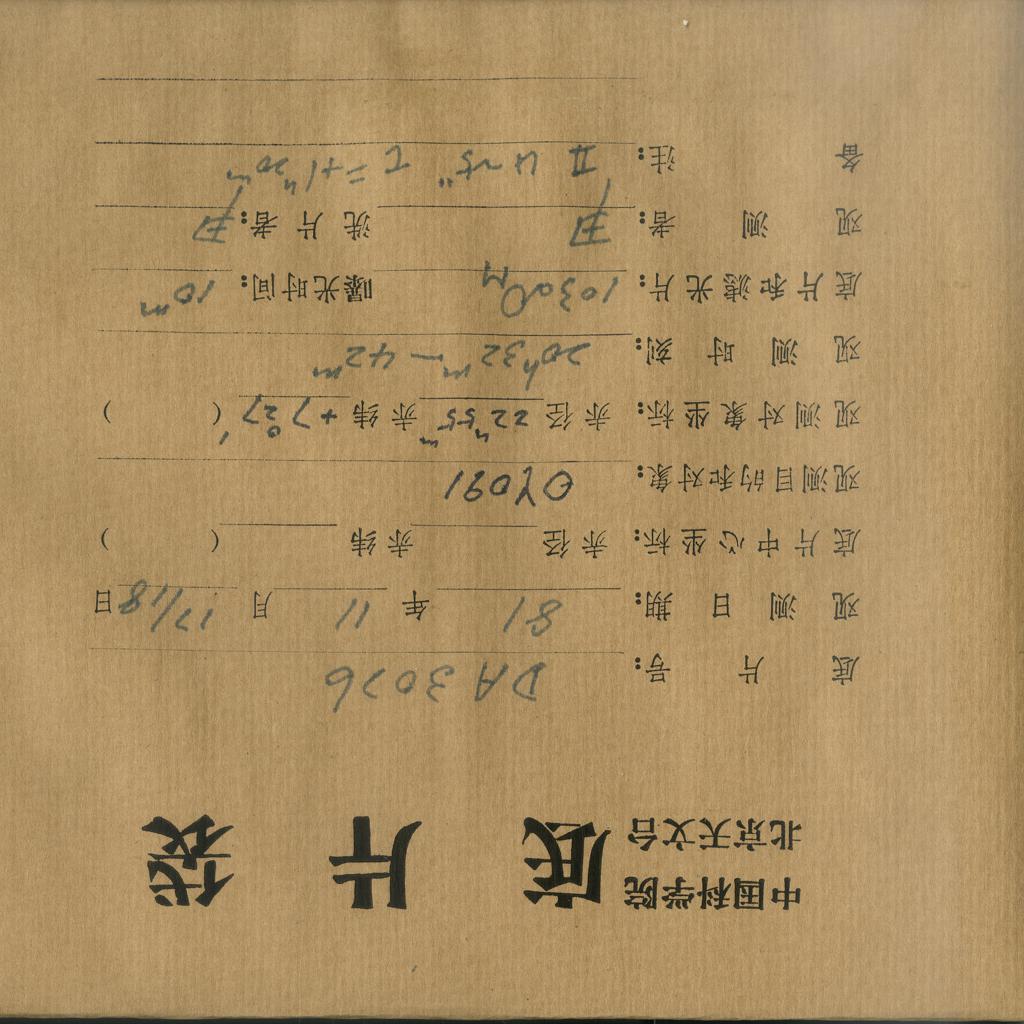 中国科学院
北京天文台
底片袋
底片号: DA 3076
观测日期: 81 年 11 月 17/18 日
底片中心坐标: 赤径 赤纬 ( )
观测目的和对象: OY091
观测对象坐标: 赤径 22ʰ55ᵐ 赤纬 +7°27′ ( )
观测时刻: 20ʰ32ᵐ—42ᵐ
底片和滤光片: 103aO 曝光时间: 10ᵐ
观测者: 洗片者:
备注: II 4~5″ τ=+1ʰ20ᵐ